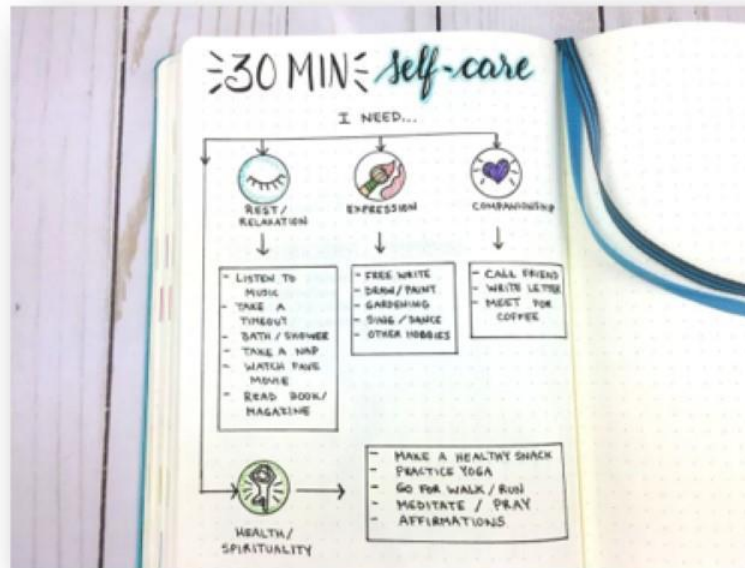 30 MIN self-care
I NEED...
REST/
RELAXATION
EXPRESSION
COMPANIONSHIP
- LISTEN TO
MUSIC
- TAKE A
TIMEOUT
- BATH / SHOWER
- TAKE A NAP
- WATCH FAVE
MOVIE
- READ BOOK/
MAGAZINE
- FREE WRITE
- DRAW/PAINT
- GARDENING
- SING / DANCE
- OTHER HOBBIES
- CALL FRIEND
- WRITE LETTER
- MEET FOR
COFFEE
HEALTH/
SPIRITUALITY
- MAKE A HEALTHY SNACK
- PRACTICE YOGA
- GO FOR WALK / RUN
- MEDITATE / PRAY
- AFFIRMATIONS